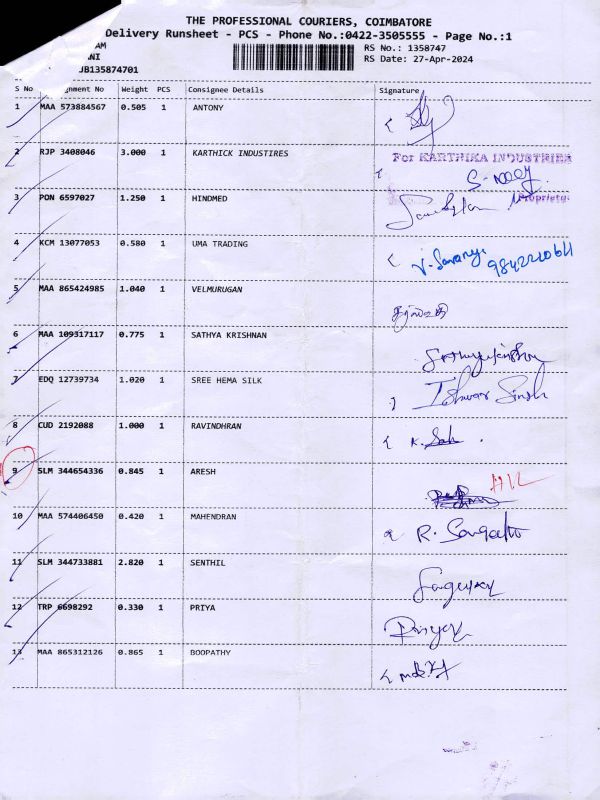 THE PROFESSIONAL COURIERS, COIMBATORE
Delivery Runsheet - PCS - Phone No.:0422-3505555 - Page No.:1
AM RS No.: 1358747
NI RS Date: 27-Apr-2024
JB135874701
S No gnment No Weight PCS Consignee Details Signature
1 MAA 573884567 0.505 1 ANTONY
2 RJP 3408046 3.000 1 KARTHICK INDUSTIRES
For KARTHIKA INDUSTRIES
Proprietor
3 PON 6597027 1.250 1 HINDMED
4 KCM 13077053 0.580 1 UMA TRADING
V. Saranya 9842220611
5 MAA 865424985 1.040 1 VELMURUGAN
6 MAA 109317117 0.775 1 SATHYA KRISHNAN
7 EDQ 12739734 1.020 1 SREE HEMA SILK
Ishwar Singh
8 CUD 2192088 1.000 1 RAVINDHRAN
9 SLM 344654336 0.845 1 ARESH
10 MAA 574406450 0.420 1 MAHENDRAN
R. Sangeetha
11 SLM 344733881 2.820 1 SENTHIL
12 TRP 6698292 0.330 1 PRIYA
Priya
13 MAA 865312126 0.865 1 BOOPATHY